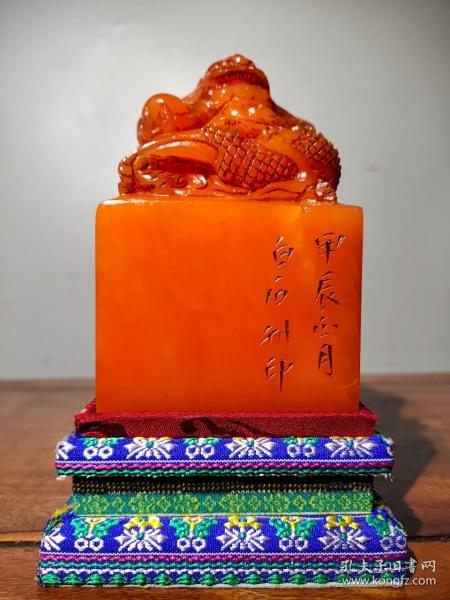 甲辰正月
白石刊印
孔夫子旧书网
www.kongfz.com